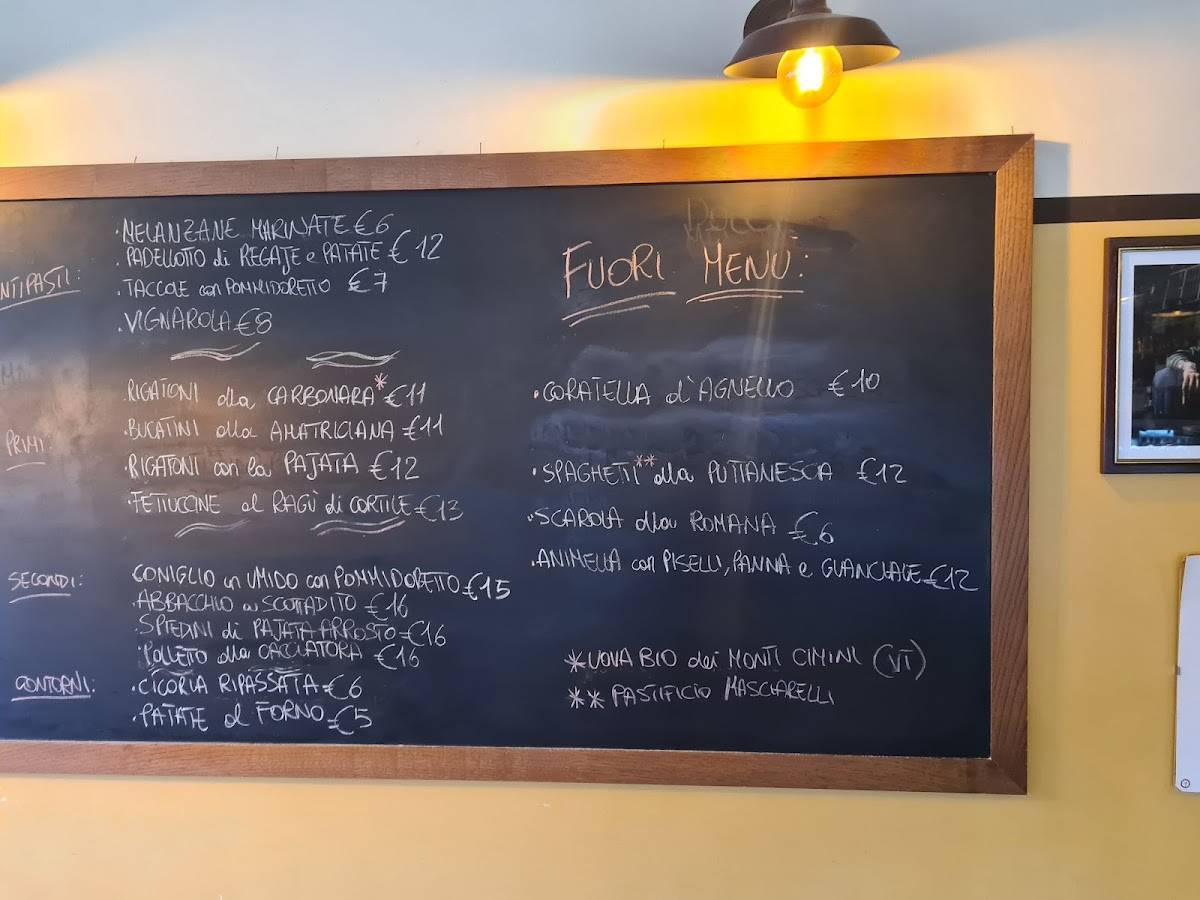 NTIPASTI:
. MELANZANE MARINATE €6
. PADELLOTTO di REGAJE e PATATE €12
. TACCOLE con POMMIDORETTO €7
. VIGNAROLA €8
PRIMI:
. RIGATONI alla CARBONARA* €11
. BUCATINI alla AMATRICIANA €11
. RIGATONI con la PAJATA €12
. FETTUCCINE al RAGÙ di CORTILE €13
SECONDI:
CONIGLIO in UMIDO con POMMIDORETTO €15
. ABBACCHIO a SCOTTADITO €16
. SPIEDINI di PAJATA ARROSTO €16
. POLLETTO alla CACCIATORA €16
CONTORNI:
. CICORIA RIPASSATA €6
. PATATE al FORNO €5
FUORI MENÙ:
. CORATELLA d'AGNELLO €10
. SPAGHETTI** alla PUTTANESCA €12
. SCAROLA alla ROMANA €6
. ANIMELLA con PISELLI, PANNA e GUANCIALE €12
* UOVA BIO dei MONTI CIMINI (VT)
** PASTIFICIO MASCIARELLI